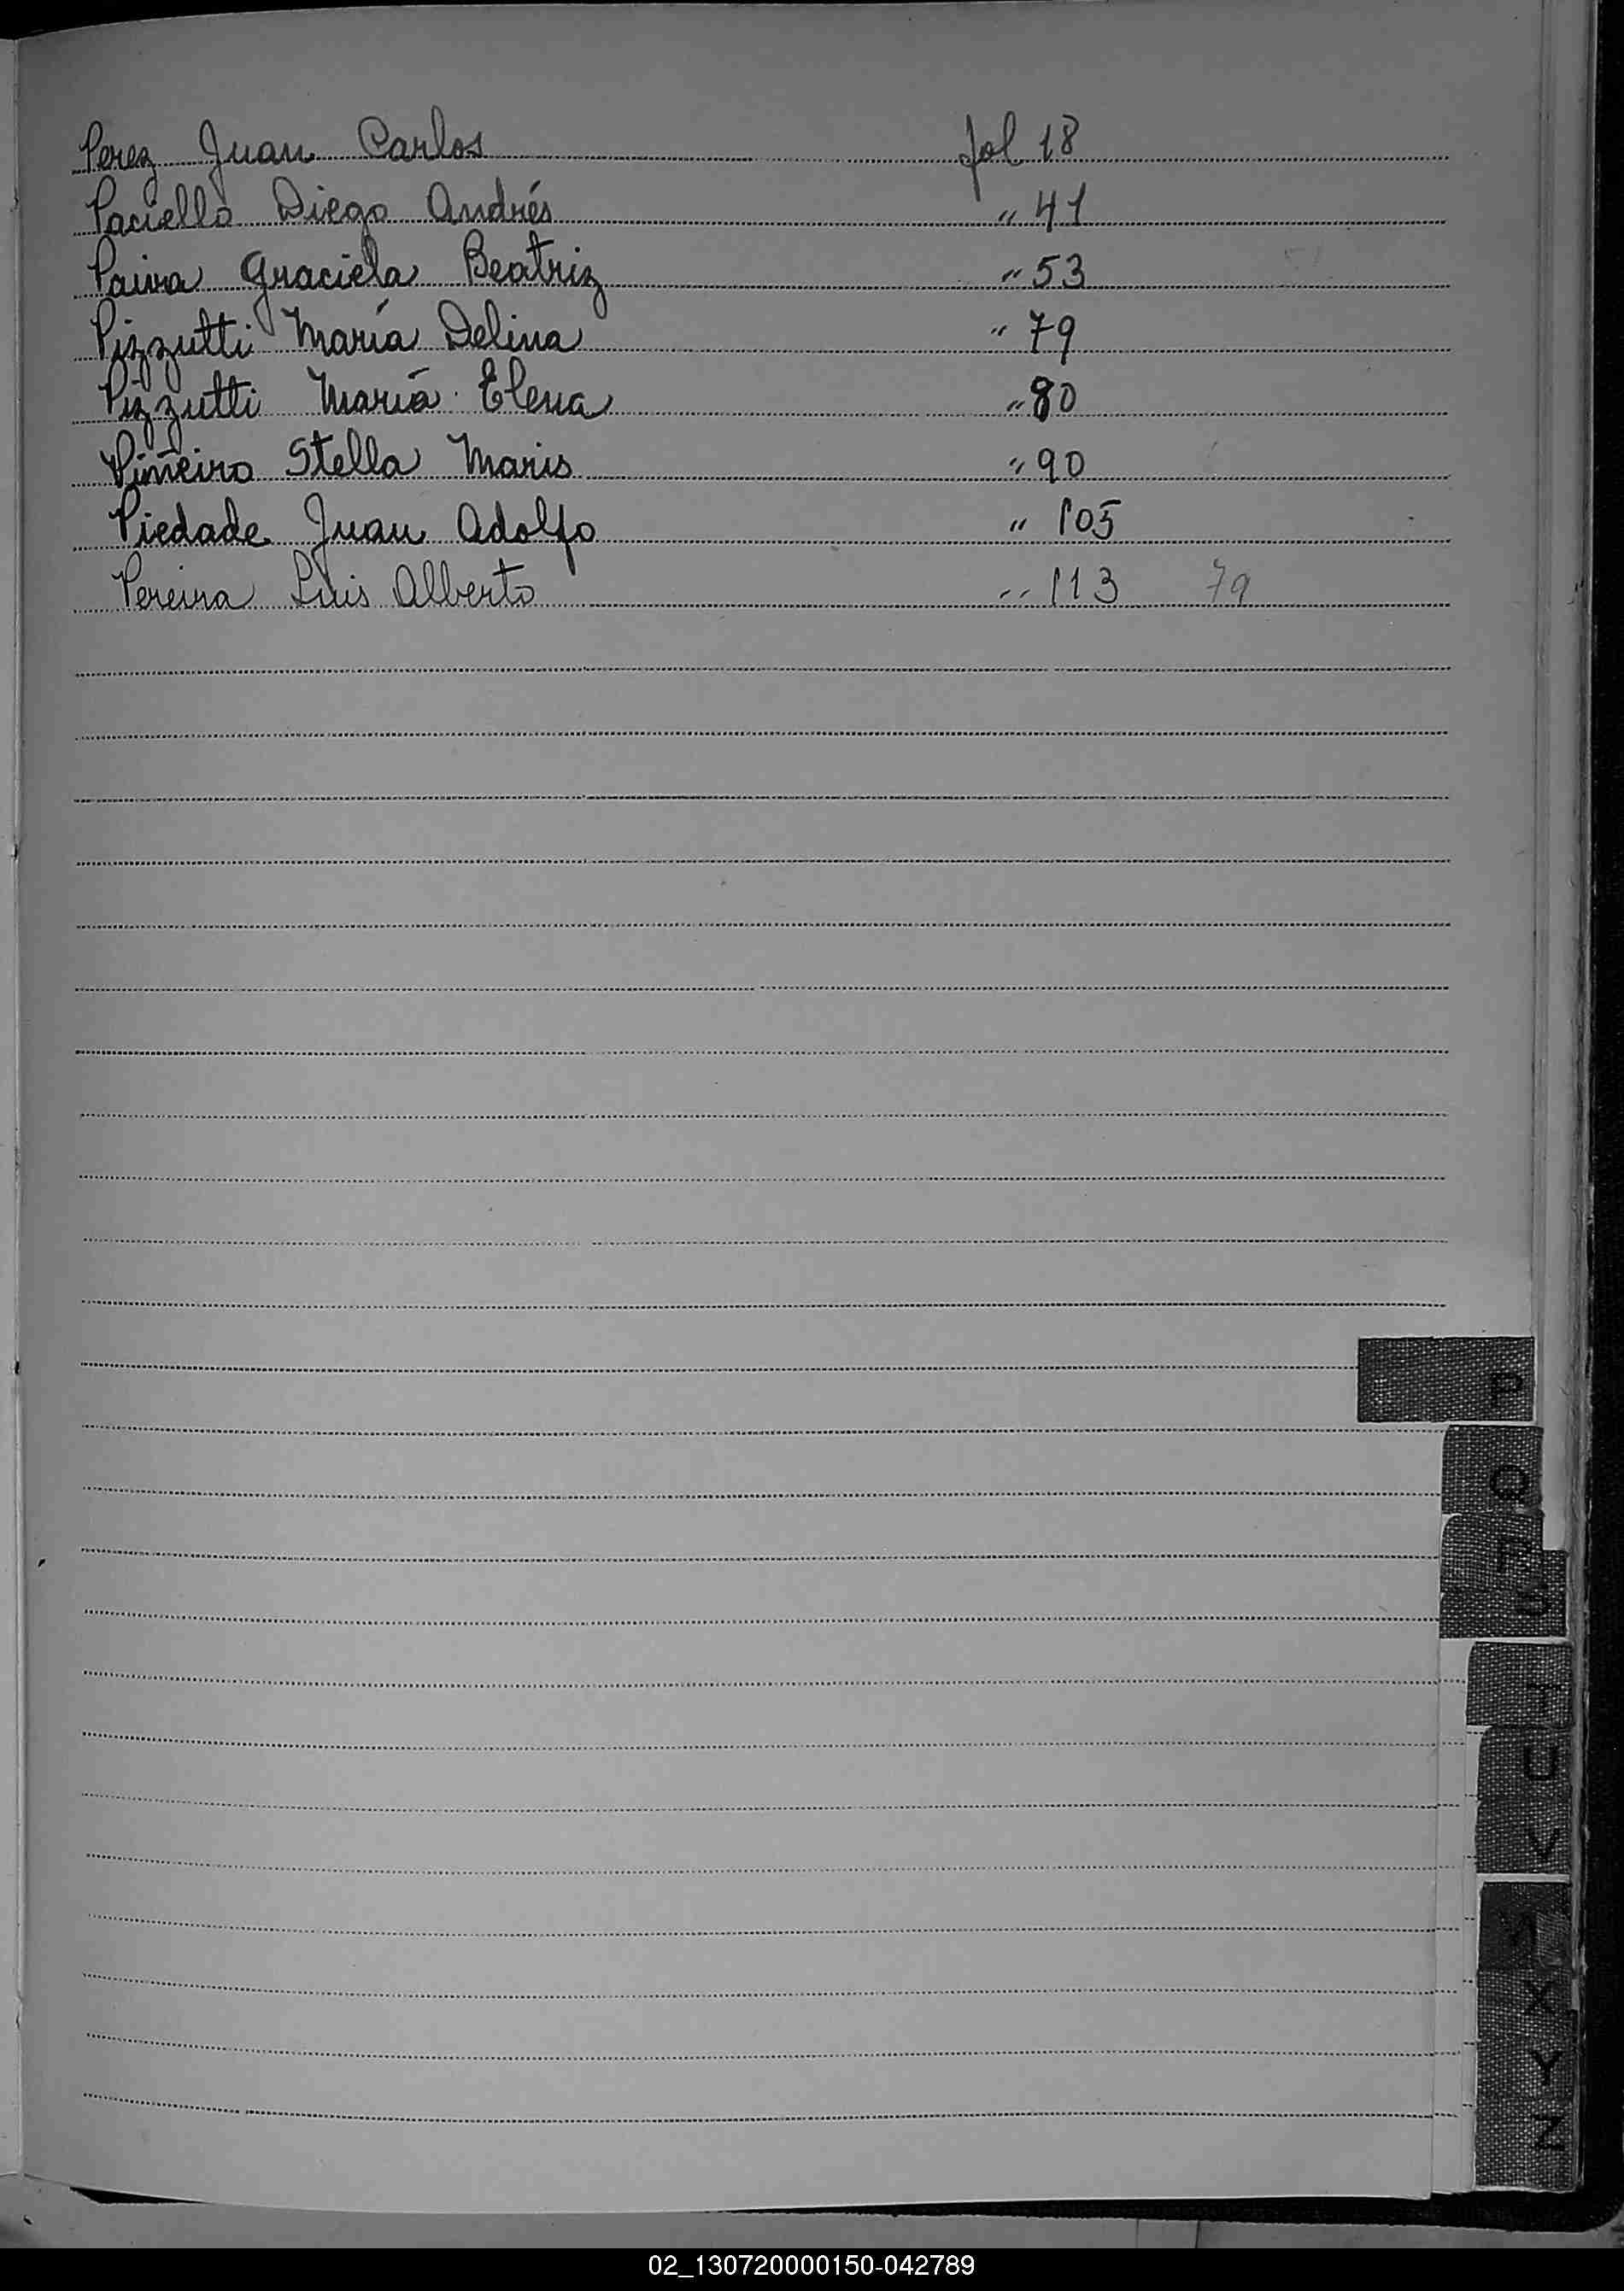 Perez Juan Carlos fol 18
Paciello Diego Andrés " 41
Paiva Graciela Beatriz " 53
Pizzutti María Delina " 79
Pizzutti María Elena " 80
Piñeiro Stella Maris " 90
Piedade Juan Adolfo " 105
Pereira Luis Alberto " 113 79
P
Q
R
S
T
U
V
X
Y
Z
02_130720000150-042789